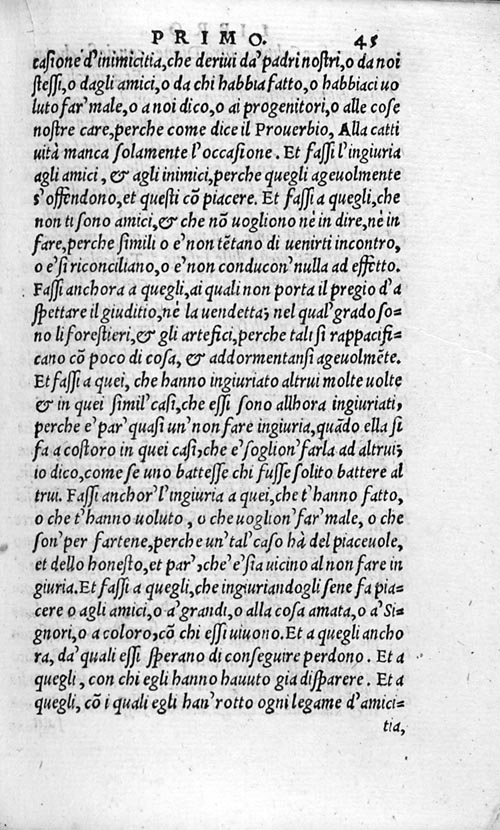 PRIMO. 45
casione d'inimicitia, che deriui da' padri nostri, o da noi
stessi, o dagli amici, o da chi habbia fatto, o habbiaci uo
luto far' male, o a noi dico, o ai progenitori, o alle cose
nostre care, perche come dice il Prouerbio, Alla catti
uità manca solamente l'occasione. Et fassi l'ingiuria
agli amici, & agli inimici, perche quegli ageuolmente
s'offendono, et questi cō piacere. Et fassi a quegli, che
non ti sono amici, & che nō uogliono nè in dire, nè in
fare, perche simili o e' non tētano di uenirti incontro,
o e' si riconciliano, o e' non conducon' nulla ad effetto.
Fassi anchora a quegli, ai quali non porta il pregio d'a
spettare il giuditio, nè la uendetta; nel qual' grado so-
no li forestieri, & gli artefici, perche tali si rappacifi-
cano cō poco di cosa, & addormentansi ageuolmēte.
Et fassi a quei, che hanno ingiuriato altrui molte uolte
& in quei simil' casi, che essi sono allhora ingiuriati,
perche e' par' quasi un' non fare ingiuria, quādo ella si
fa a costoro in quei casi, che e' soglion' farla ad altrui;
io dico, come se uno battesse chi fusse solito battere al
trui. Fassi anchor' l'ingiuria a quei, che t'hanno fatto,
o che t'hanno uoluto, o che uoglion' far' male, o che
son' per fartene, perche un' tal' caso hà del piaceuole,
et dello honesto, et par', che' e' sia uicino al non fare in
giuria. Et fassi a quegli, che ingiuriandogli sene fa pia-
cere o agli amici, o a' grandi, o alla cosa amata, o a' Si-
gnori, o a coloro, cō chi essi uiuono. Et a quegli ancho
ra, da' quali essi sperano di conseguire perdono. Et a
quegli, con chi egli hanno hauuto gia disparere. Et a
quegli, cō i quali egli han' rotto ogni legame d'amici-
tia,